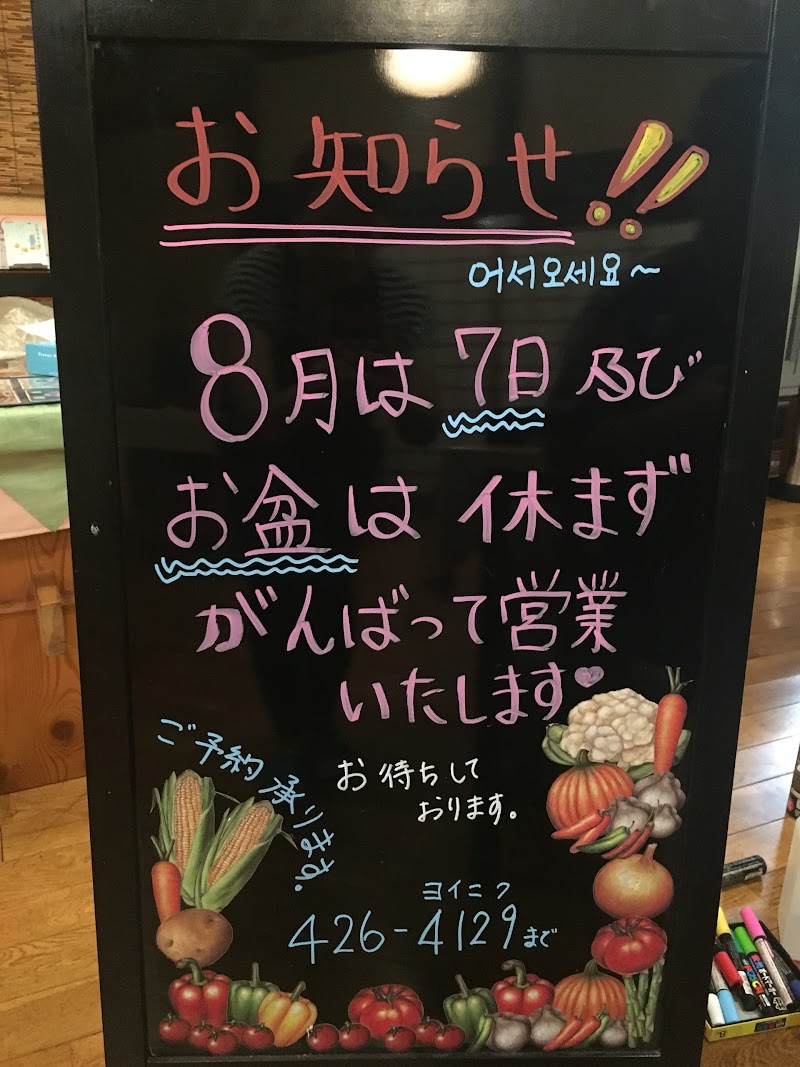 お知らせ!!
어서오세요~
8月は7日及び
お盆は休まず
がんばって営業
いたします♥
ご予約承ります。
お待ちして
おります。
ヨイニク
426-4129まで